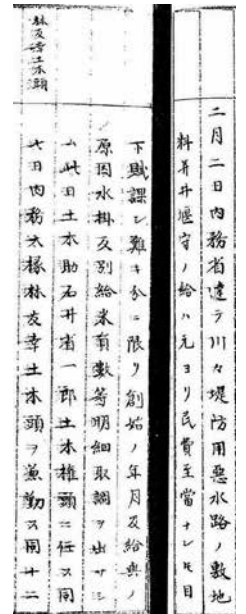 二月二日内務省達ラ川々堤防用悪水路ノ敷地
料并井堰守ノ給ハ元ヨリ民費至當ナレ𪜈目
下賦課シ難キ分ニ限リ創始ノ年月及給與ノ
原因水掛反別給米有數等明細取調ヲ出サシ
ム此日土木助石井省一郎土木權頭ニ任ス同
七日内務大椽林友幸土木頭ヲ兼勤ス同十二
林友幸土木頭